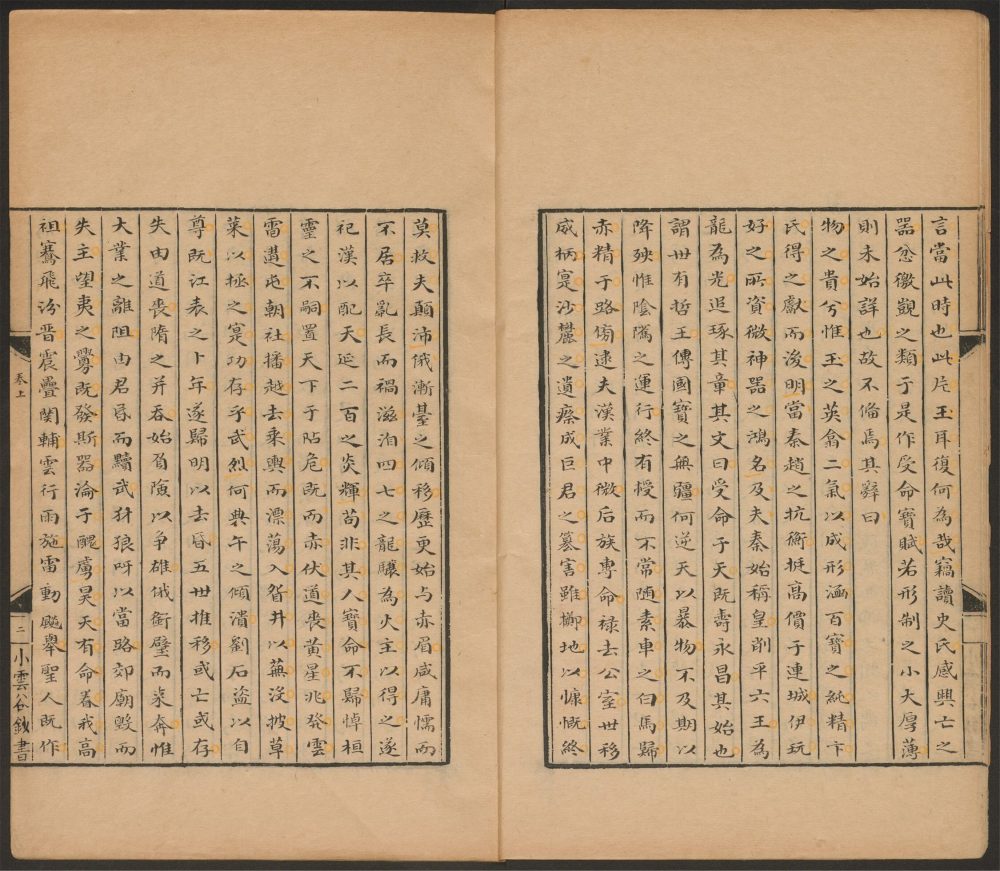 言當此時也此片玉耳復何為哉竊讀史氏感興亡之
器忿徼觀之類于是作受命寶賦若形制之小大厚薄
則未始詳也故不偹焉其辭曰
物之貴兮惟玉之英翕二氣以成形涵百寶之純精卞
氏得之獻而浚明當秦趙之抗衡挺高價于連城伊玩
好之所資微神器之鴻名及夫秦始稱皇削平六王為
龍為光追琢其章其文曰受命于天既壽永昌其始也
謂世有哲王傳國寶之無疆何逆天以暴物不及期以
降殃惟陰隲之運行終有授而不常随素車之白馬歸
赤精于路俯逮夫漢業中微后族專命祿去公室世移
威柄寔沙麓之遺瘵成巨君之篡害雖擲地以慷慨終
莫救夫顛沛俄漸臺之傾移歷更始与赤眉咸庸懦而
不居卒亂長而禍滋洎四七之龍驤為火主以得之遂
祀漢以配天延二百之炎輝苟非其人寶命不歸悼桓
靈之不嗣置天下于阽危既而赤伏道喪黄星兆發雲
雷遘屯朝社播越去乘輿而漂蕩入眢井以蕪没披草
萊以拯之寔功存乎武烈何典午之傾潰劉石盜以自
尊既江表之卜年遂歸明以去昏五世推移或亡或存
失由道喪隋之并吞始負險以爭雄俄銜璧而來奔惟
大業之離阻由君辱而黷武犲狼呀以當路郊廟毀而
失主望夷之釁既發斯器淪于醜虜昊天有命眷我高
祖騫飛汾晋震疊関輔雲行雨施雷動飈舉聖人既作
卷上
二
小雲谷鈔書